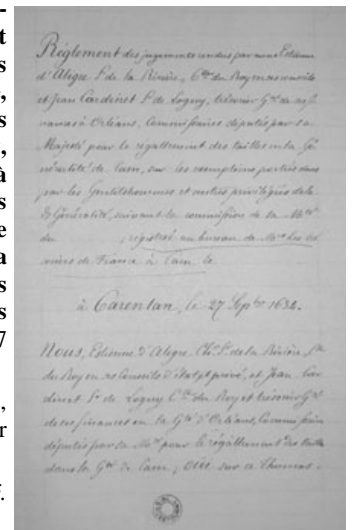 Réglement des jugements rendus par nous Etienne
d'Aligre Sr de la Rivière, Cer du Roy en ses conseils
et Jean Cardinet Sr de Loigny, trésorier Gal de ses f
nances à Orléans, Commissaires députés par sa
Majesté pour le régallement des tailles en la Gé
néralité de Caen, sur les exemptions portées dans
par les Gentilshommes et autres privilégiés de la
de Généralité, suivant la commission de sa Mté
du , registré au bureau de Mrs les tré
soriers de France à Caen le
à Carentan, le 27 Septbre 1634.
Nous, Etienne d'Aligre Chr Sr de la Rivière, Cer
du Roy en ses Conseils d'état et privé, et Jean Car
dinet Sr de Loigny Cer du Roy et trésorier Gal
de ses finances en la Gté d'Orléans, Commissaires
députés par sa Mté pour le régallement des tailles
dans la Gté de Caen; ouï sur ce Thomas
t
s
,
s
,
à
s
e
a
s
s
7
,
r
.